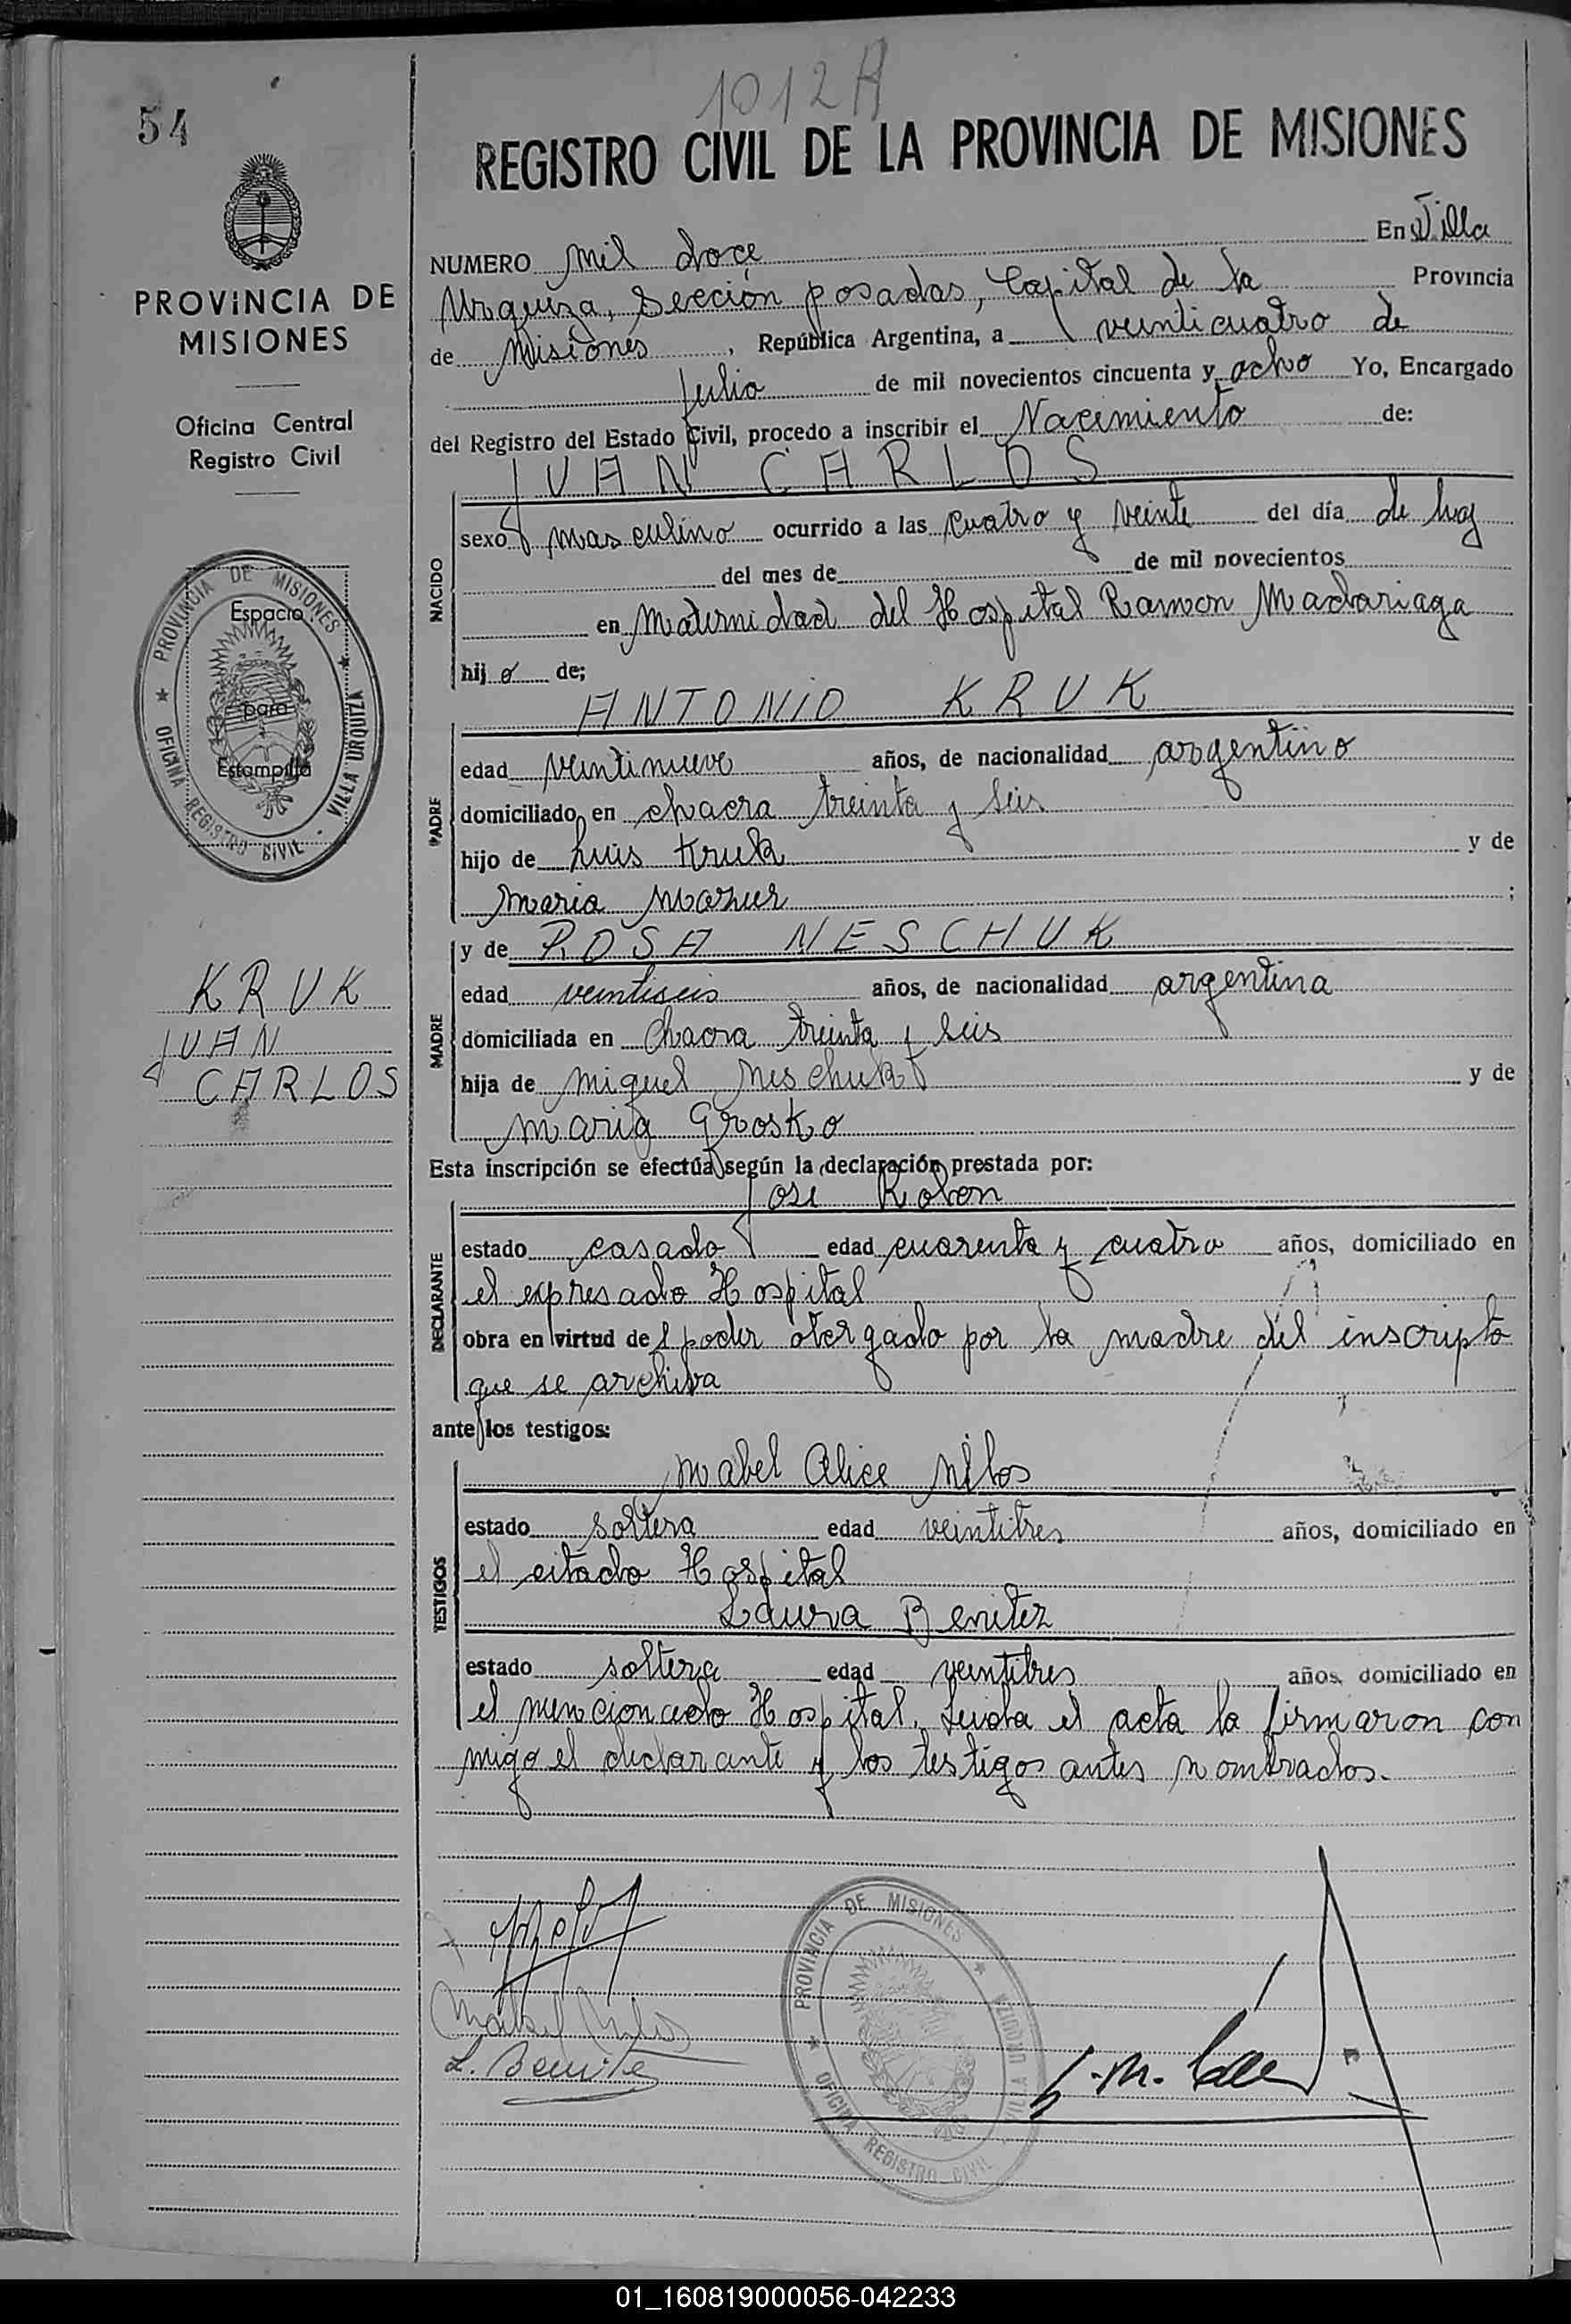 1012A
54
REGISTRO CIVIL DE LA PROVINCIA DE MISIONES
PROVINCIA DE
MISIONES
Oficina Central
Registro Civil
PROVINCIA DE MISIONES
OFICINA REGISTRO CIVIL - VILLA URQUIZA
Espacio
para
Estampilla
KRUK
JUAN
CARLOS
NUMERO mil doce En Villa
Urquiza, Sección posadas, Capital de la Provincia
de Misiones, República Argentina, a veinticuatro de
Julio de mil novecientos cincuenta y ocho Yo, Encargado
del Registro del Estado Civil, procedo a inscribir el Nacimiento de:
JUAN CARLOS
NACIDO
sexo masculino ocurrido a las cuatro y veinte del día de hoy
del mes de de mil novecientos
en Maternidad del Hospital Ramon Madariaga
hijo de;
ANTONIO KRUK
PADRE
edad veintinueve años, de nacionalidad argentino
domiciliado en chacra treinta y seis
hijo de Luis Kruk y de
Maria Mazur ;
y de ROSA NESCHUK
MADRE
edad veintiseis años, de nacionalidad argentina
domiciliada en Chacra treinta y seis
hija de Miguel Neschuk y de
Maria Grosko
Esta inscripción se efectúa según la declaración prestada por:
Jose Rolon
DECLARANTE
estado casado edad cuarenta y cuatro años, domiciliado en
el expresado Hospital
obra en virtud del poder otorgado por la madre del inscripto
que se archiva
ante los testigos:
Mabel Alice
TESTIGOS
estado soltera edad veintitres años, domiciliado en
el citado Hospital
Laura Benitez
estado soltera edad veintitres años, domiciliado en
el mencionado Hospital. Leida el acta la firmaron con
migo el declarante y los testigos antes nombrados.
Mabel
L. Benitez
PROVINCIA DE MISIONES
OFICINA REGISTRO CIVIL VILLA URQUIZA
01_160819000056-042233